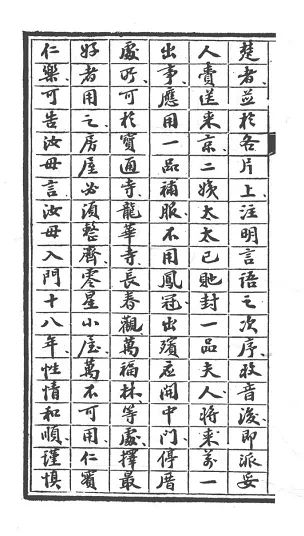 楚者並於各片上、注明言語之次序、收音後即派妥
人賫送来京、二姨太太已貤封一品夫人、将来萬一
出事、應用一品補服、不用鳳冠、出殯應開中門、停厝
處所、可於寶通寺、龍華寺、長春觀、萬福林等處、擇最
好者用之、房屋必須整齊、零星小屋、萬不可用、仁賓
仁樂、可告汝母言、汝母入門十八年、性情和順、謹慎